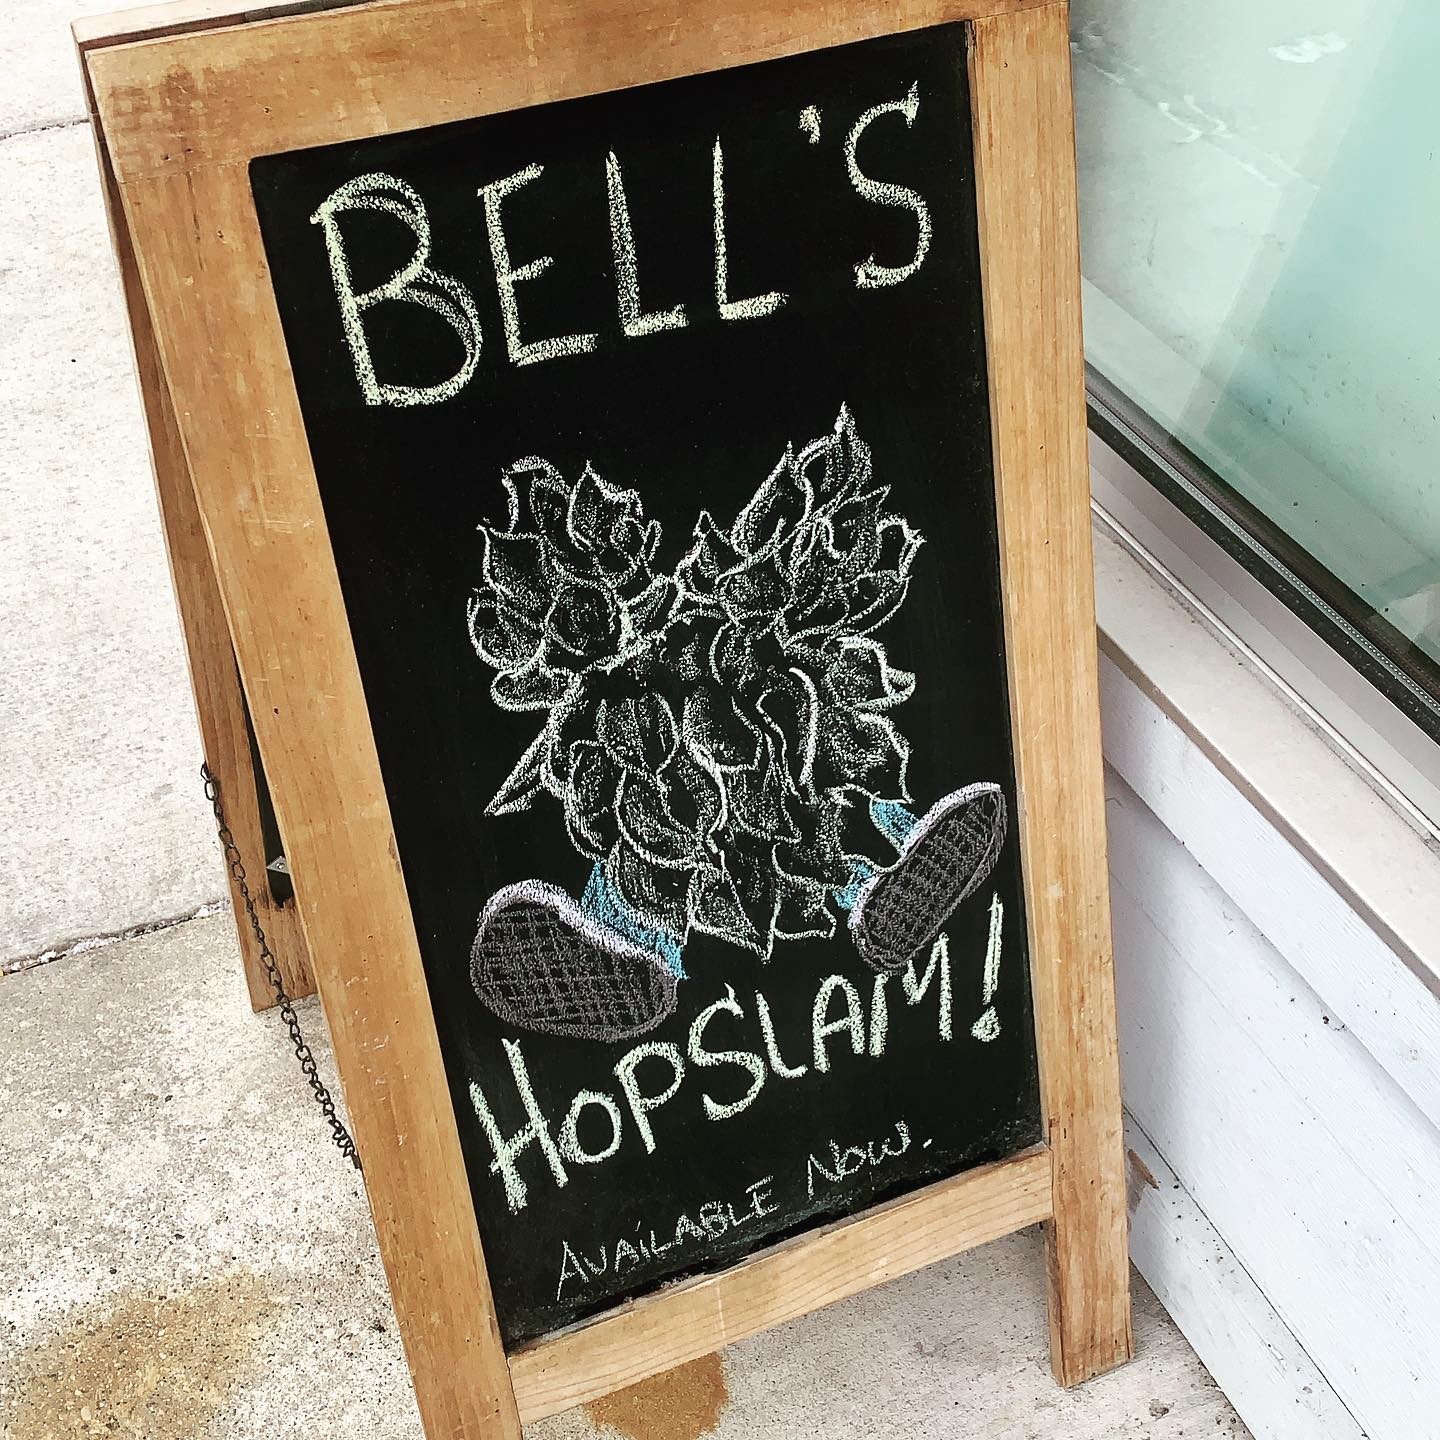 BELL'S
HOPSLAM!
AVAILABLE NOW.